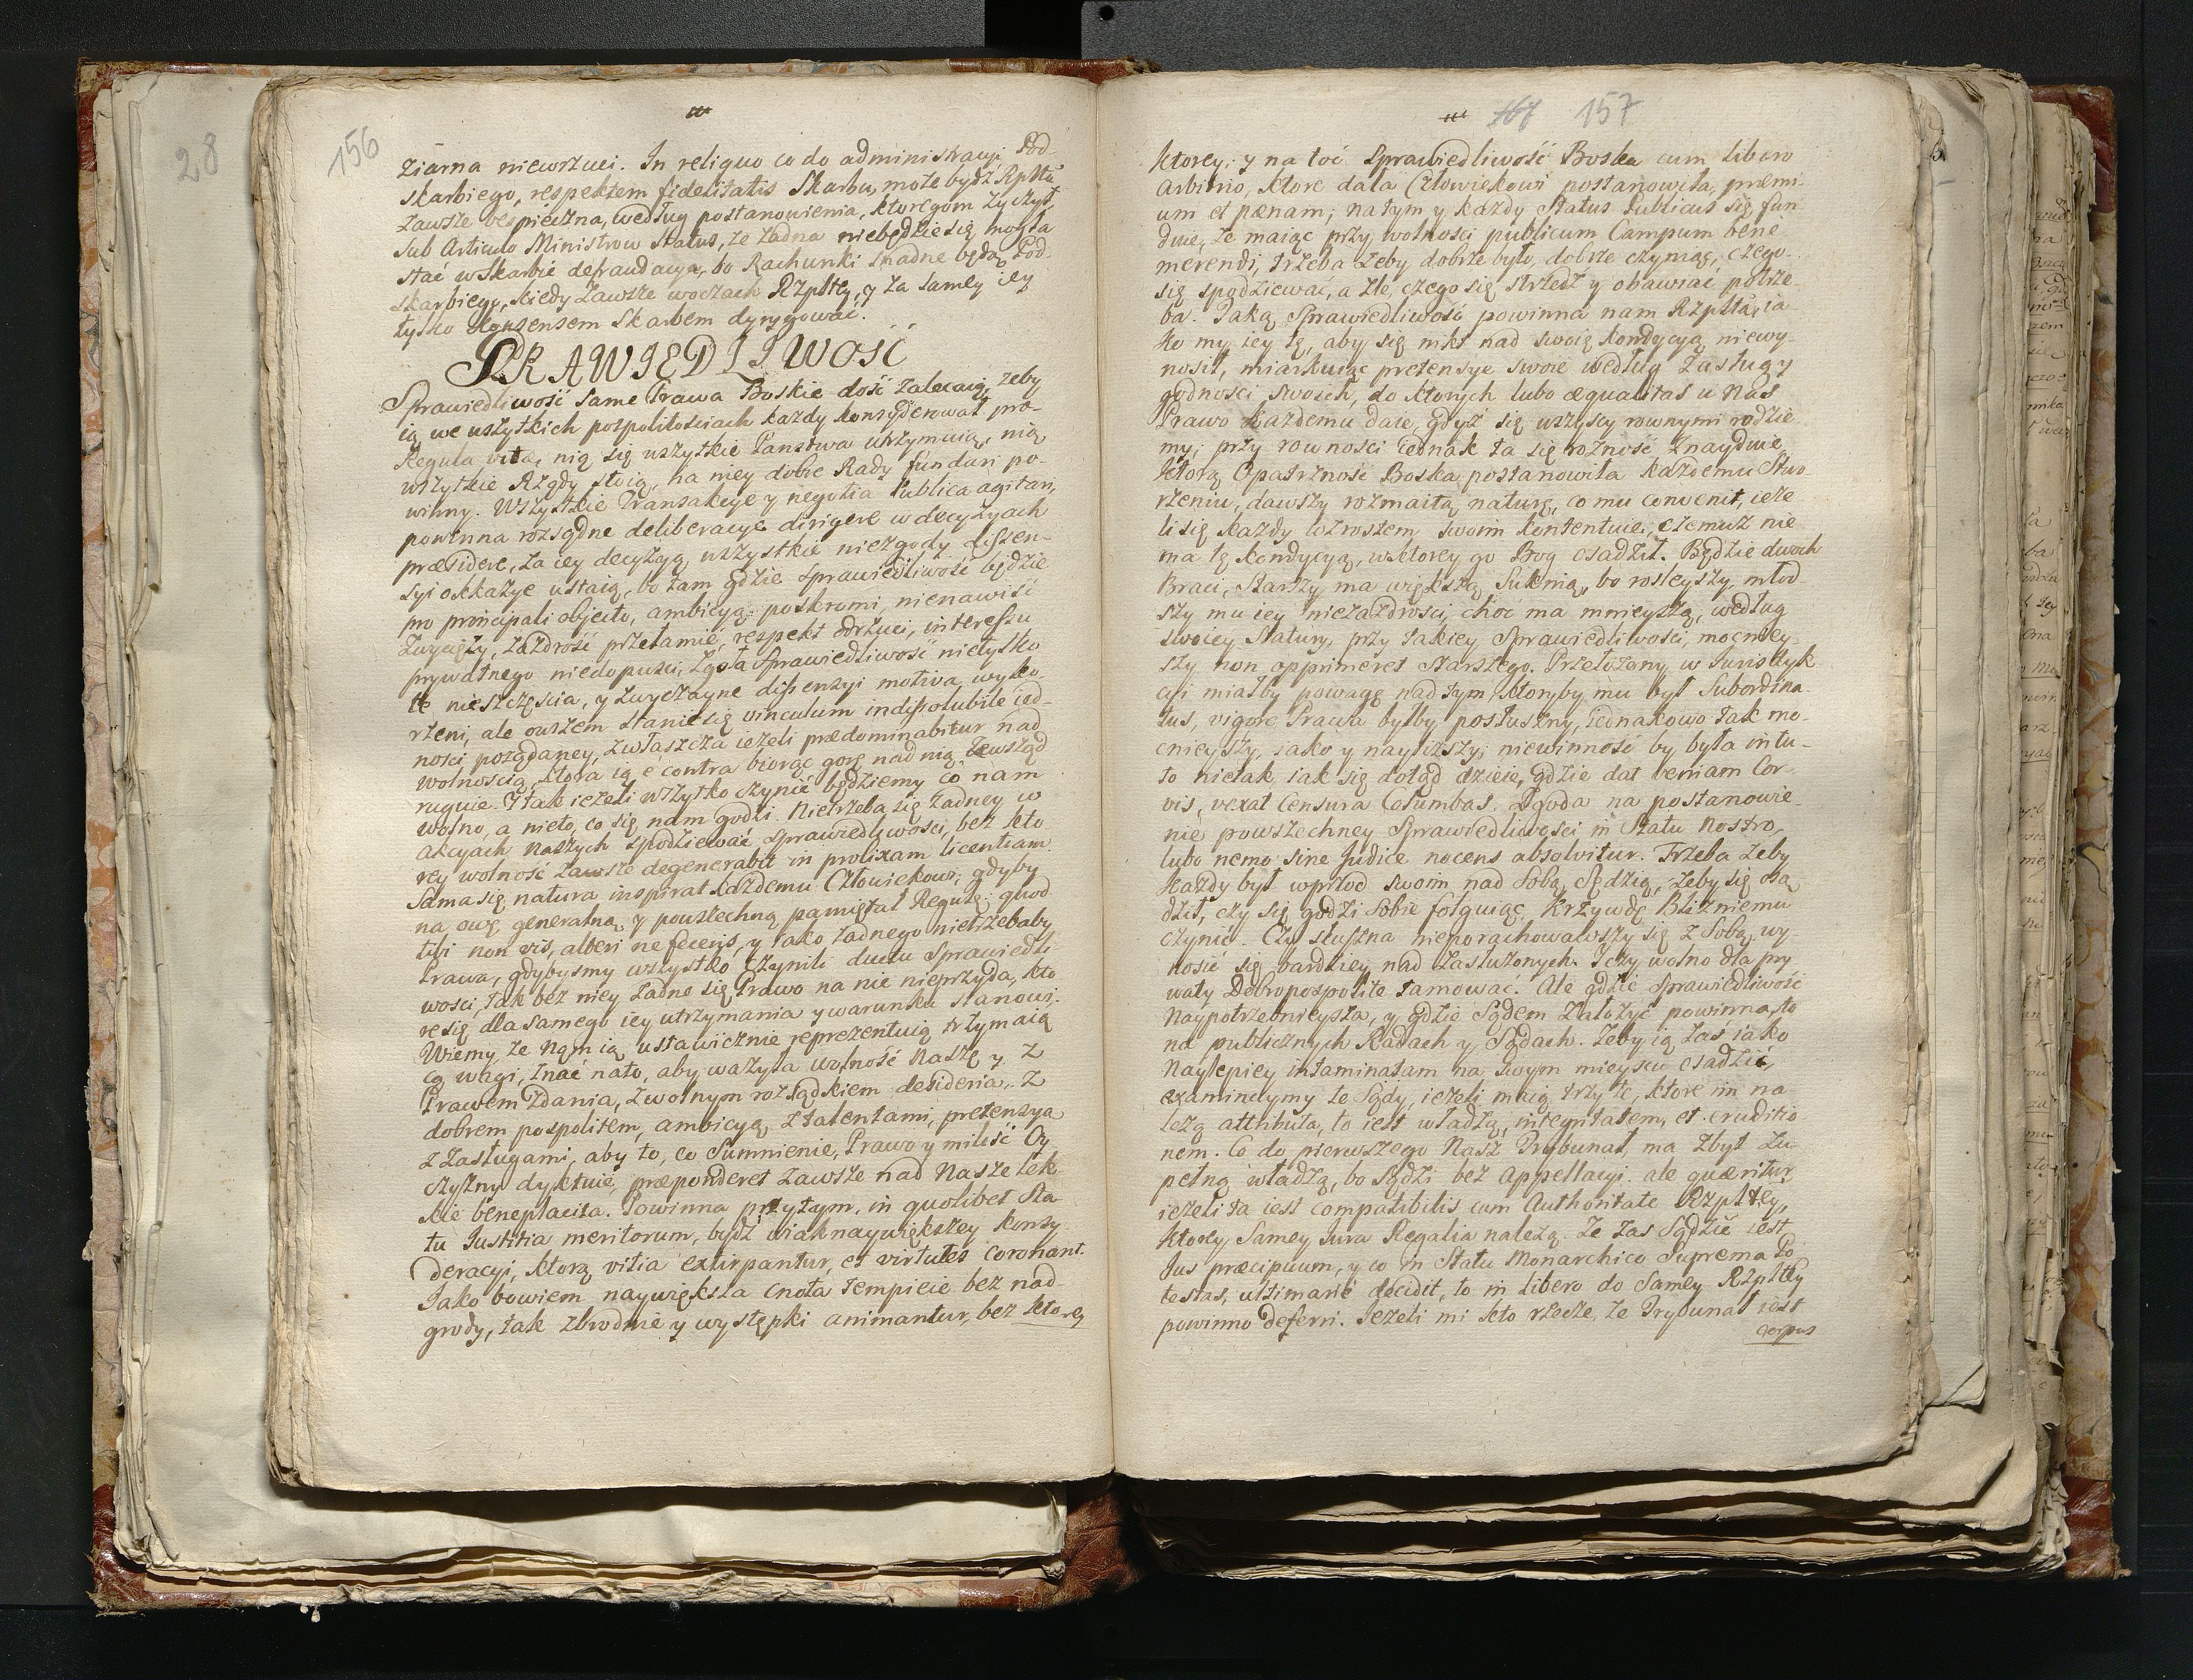 28
156
ziarna niewrzuci. In reliquo co do administracyi Pod-
skarbiego, respektem fidelitatis Skarbu, może bydź Rpltā
zawsze bespieczna, według postanowienia, ktoregom życzył,
sub Articulo Ministrow Status, że żadna niebędzie się mogła
stać w Skarbie defraudacya, bo Rachunki snadne będą Pod-
skarbiego, kiedy zawsze woczach Rzpltey, y za samey iey
tylko Konsensem Skarbem dyrygować.
SPRAWIEDLIWOSĆ
Sprawiedliwość same Prawa Boskie dość zalecaią, żeby
ią we wszytkich pospolitościach każdy konsyderował pro
Regula vitæ, nią się wszytkie Panstwa utrzymuią, nią
wszytkie Rządy stoią, na niey dobre Rady fundari po-
winny. Wszystkie Transakcye y negotia Publica agitari,
powinna rozsądne deliberacye dirigere w decyzyach
præsidere, za iey decyzyą wszystkie niezgody, dissen-
syi okkazye ustaią, bo tam gdzie sprawiedliwość będzie
pro principali objecto, ambicyą poskromi, nienawiść
zwycięży, zazdrość przełamie, respekt odrzuci, interessu
prywatnego niedopuści, zgoła Sprawiedliwość nietylko
te nieszczęścia, y zwyczayne dissensyi motiva wyko-
rzeni, ale owszem stanie się vinculum indissolubile ied-
ności pożądaney, zwłaszcza ieżeli prædominabitur nad
wolnością, ktora ią è contra biorąc gorę nad nią, zewsząd
ruguie. Y tak ieżeli wszytko czynić będziemy co nam
wolno, a nieto, co się nam godzi. Nietrzeba się żadney w
akcyach naszych spodziewać sprawiedliwości, bez kto-
rey wolność zawsze degenerabit in prolixam licentiam.
Sama się natura inspirat każdemu Człowiekowi, gdyby
na owę generalną y powszechną pamiętał Regułę; quod
tibi non vis, alteri ne feceris, y tako żadnego nietrzebaby
Prawa, gdybysmy wszystko czynili ductu Sprawiedli-
wości, tak bez niey żadne się Prawo na nie nieprzyda, kto
re się dla samego iey utrzymania y warunku stanowi.
Wiemy, że nam ią ustawicznie reprezentuią trzymaią
cą wagi, znać nato, aby ważyła wolność naszę y z
Prawem zdania, z wolnym rozsądkiem desideria, z
dobrem pospolitem, ambicyą z talentami, pretensya
z zasługami, aby to, co Sumnienie, Prawo y miłość Oy
czyzny dyktuie, præponderet zawsze nad nasze lek-
kie beneplacita. Powinna przytym, in quolibet Sta-
tu Justitia meritorum, bydź w iaknaywiększey konsy-
deracyi, ktorą vitia extirpantur, et virtutes coronant.
Jako bowiem naywiększa cnota tempieie bez nad-
grody, tak zbrodnie y występki animantur, bez ktorey
157
ktorey; y na toć Sprawiedliwość Boska cum libero
arbitrio, ktore dała Człowiekowi postanowiła, præmi-
um et pænam; natym y każdy Status Publicus się fun
duie, że maiąc przy wolności publicum Campum bene
merendi, trzeba żeby dobrze było, dobrze czyniąc, czego
się spodziewać, a źle, czego się strzedz y obawiać potrze-
ba. Taką Sprawiedliwość powinna nam Rzpltā, ia-
ko my iey tę, aby się nikt nad swoię kondycyą niewy-
nosił, miarkuiąc pretensye swoie według zasług y
godności swoich, do ktorych lubo æqualitas u nas
Prawo każdemu daie, gdyż się wszyscy rownymi rodzie-
my; przy rowności iednak ta się rożność znayduie
ktorą Opatrzność Boska postanowiła każdemu Stwo
rzeniu, dawszy rozmaitą naturę, co mu convenit, ieże
li się każdy wzrostem swoim kontentuie, czemuż nie
ma tę kondycyą, w ktorey go Bog osadził. Będzie dwoch
Braci, Starszy ma większą Suknią, bo rosleyszy, młod-
szy mu iey niezazdrości, choć ma mnieyszą, według
swoiey Statury, przy takiey Sprawiedliwości, mocniey
szy non opprimeret starszego. Przełożony w Jurisdyk
cyi miałby powagę nad tym, ktoryby mu był Subordina-
tus, vigore Prawa byłby posłuszny, iednakowo tak mo-
cnieyszy, iako y nayliższy; niewinność by była in tu-
to nietak iak się dotąd dzieie, gdzie dat veniam Cor-
vis, vexat Censura Columbas. Zgoda na postanowie-
nie powszechney Sprawiedliwości in Statu Nostro,
lubo nemo sine Judice nocens absolvitur. Trzeba żeby
każdy był wprzod swoim nad Sobą Sędzią, żeby się osą
dził, czy się godzi Sobie folguiąc, Krzywdę Blizniemu
czynić. Czy słuszna nieporachowawszy się z Sobą wy-
nosić się bardziey nad zasłużonych. Jeży wolno dla pry
waty Dobropospolite tamować. Ale gdzie Sprawiedliwość
Naypotrzebnieysza, y gdzie Sądem założyć powinna, to
na publicznych Radach y Sądach. Żeby ią zaś iako
Naylepiey intaminatam na swym mieyscu osadzić,
examinuymy te Sądy, ieżeli maią trzy te, ktore im na-
leżą attributa, to iest władzą, integritatem, et eruditio
nem. Co do pierwszego Nasz Trybunał ma zbyt zu-
pełną władzą, bo Sądzi bez appellacyi. ale quæritur
ieżeli ta iest compatibilis cum Authoritate Rzpltey,
ktorey samey Jura Regalia należą. Że zas Sądzić iest
Jus præcipuum, y co in Statu Monarchico Suprema Po
testas, ultimarie decidit, to in libero do samey Rzpltey
powinno deferri. Jeżeli mi kto rzecze, że Trybunał iest
corpus